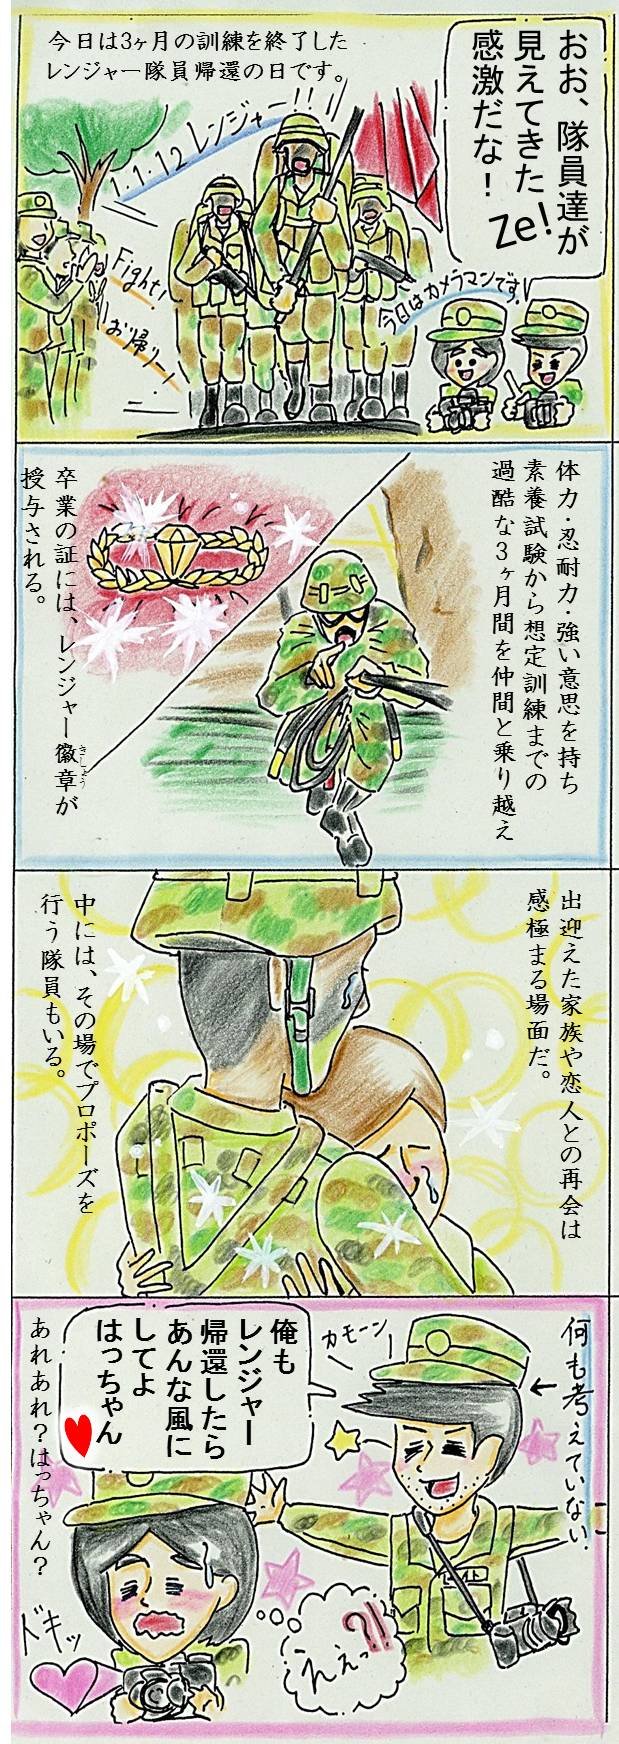 今日は3ヶ月の訓練を終了した
レンジャー隊員帰還の日です。
おお、隊員達が
見えてきた
Ze!
感激だな！
1.1.12レンジャー!!
Fight!
お帰りー!
今日はカメラマンです!
体力・忍耐力・強い意思を持ち
素養試験から想定訓練までの
過酷な3ヶ月間を仲間と乗り越え
卒業の証には、レンジャー徽章が
きしょう
授与される。
出迎えた家族や恋人との再会は
感極まる場面だ。
中には、その場でプロポーズを
行う隊員もいる。
何も考えていない
カモーン
俺も
レンジャー
帰還したら
あんな風に
してよ
はっちゃん
あれあれ？はっちゃん？
ええっ?!
ドキッ